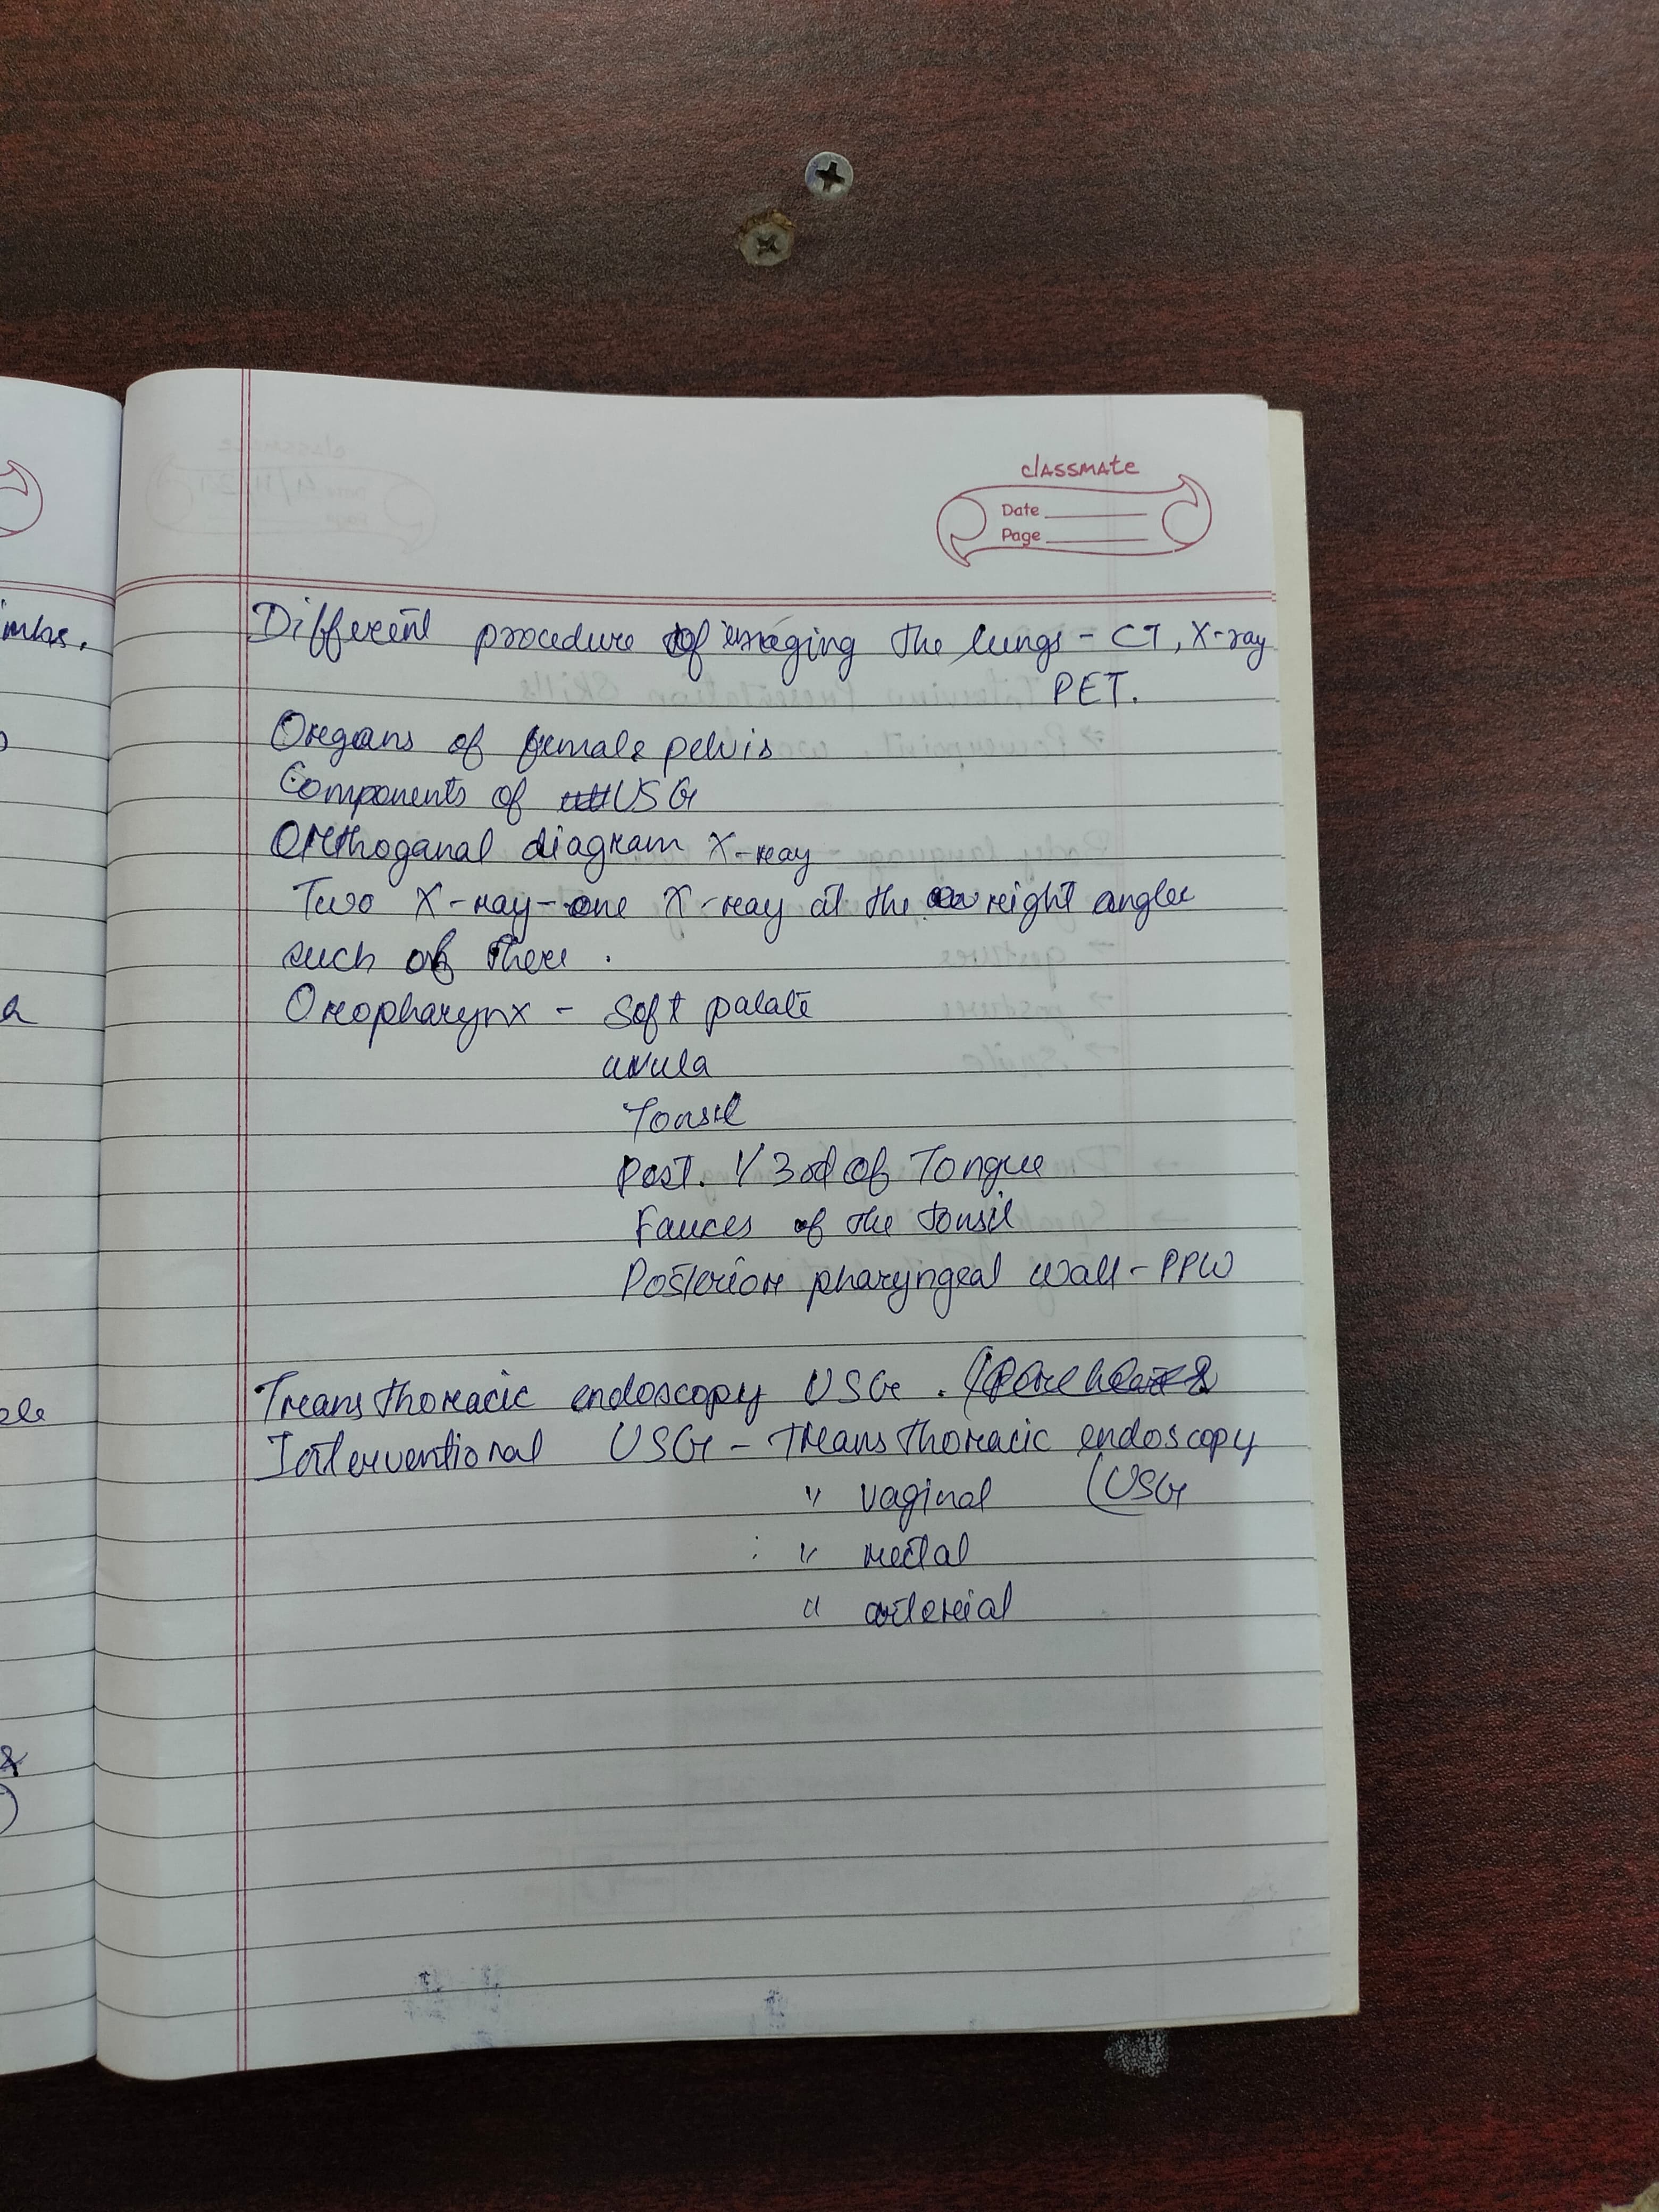 classmate
Date
Page
imbs.
Different procedure of imaging the lungs - CT, X-ray
PET.
Organs of female pelvis
Components of USG
Orthoganal diagram X-ray
Two X-ray - one X-ray at the right angle
such of there.
Oropharynx - Soft palate
uvula
Tonsil
Post. 1/3rd of Tongue
Fauces of the tonsil
Posterior pharyngeal wall - PPW
Transthoracic endoscopy USG.
Interventional USG - Transthoracic endoscopy
" vaginal (USG
" rectal
" arterial